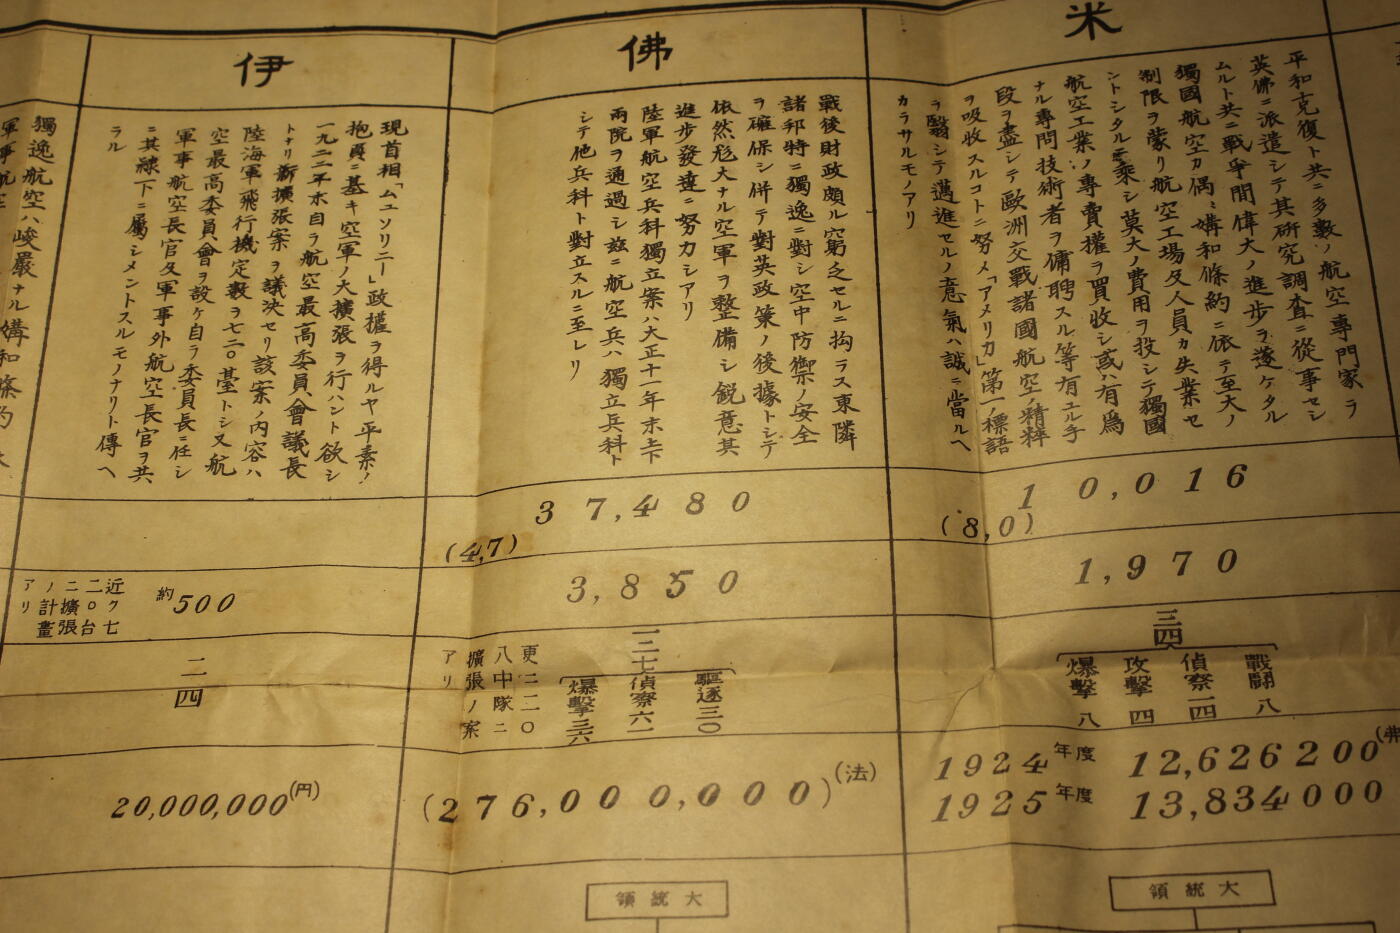 米
平和克復ト共ニ多數ノ航空專門家ヲ
英佛ニ派遣シテ其研究調査ニ從事セシ
ムルト共ニ戰爭間偉大ノ進歩ヲ遂ケタル
獨國航空カ偶〻媾和條約ニ依テ至大ノ
制限ヲ蒙リ航空工場及人員カ失業セ
ントシタルニ乘シ莫大ノ費用ヲ投シテ獨國
航空工業ノ專賣權ヲ買收シ或ハ有爲
ナル專門技術者ヲ傭聘スル等有ユル手
段ヲ盡シテ歐洲交戰諸國航空ノ精粹
ヲ吸收スルコトニ努メ「アメリカ」第一ノ標語
ヲ翳シテ邁進セルノ意氣ハ誠ニ當ルヘ
カラサルモノアリ
10,016
(8,0)
1,970
三四
戰鬪 八
偵察 一四
攻擊 四
爆擊 八
1924年度 12,626200(弗
1925年度 13,834000
大統領
佛
戰後財政頗ル窮乏セルニ拘ラス東隣
諸邦特ニ獨逸ニ對シ空中防禦ノ安全
ヲ確保シ併テ對英政策ノ後據トシテ
依然尨大ナル空軍ヲ整備シ銳意其
進步發達ニ努力シアリ
陸軍航空兵科獨立案ハ大正十一年末上下
兩院ヲ通過シ玆ニ航空兵ハ獨立兵科ト
シテ他兵科ト對立スルニ至レリ
37,480
(4,7)
3,850
一二七
驅逐 三〇
偵察 六一
爆擊 三六
更ニ二一〇
八中隊ニ
擴張ノ案
アリ
(276,000,000)(法)
大統領
伊
現首相「ムユソリニー」政權ヲ得ルヤ平素ノ
抱負ニ基キ空軍ノ大擴張ヲ行ハント欲シ
一九二二年末自ラ航空最高委員會議長
トナリ新擴張案ヲ議決セリ該案ノ內容ハ
陸海軍飛行機定數ヲ七二〇臺トシ又航
空最高委員會ヲ設ケ自ラ委員長ニ任シ
軍事航空長官及軍事外航空長官ヲ共
ニ其隷下ニ屬シメントスルモノナリト傳ヘ
ラル
約500
近ク七
二〇台
ニ擴張
ノ計畫
アリ
二四
20,000,000(円)
獨逸航空ハ峻嚴ナル媾和條約
軍事航空